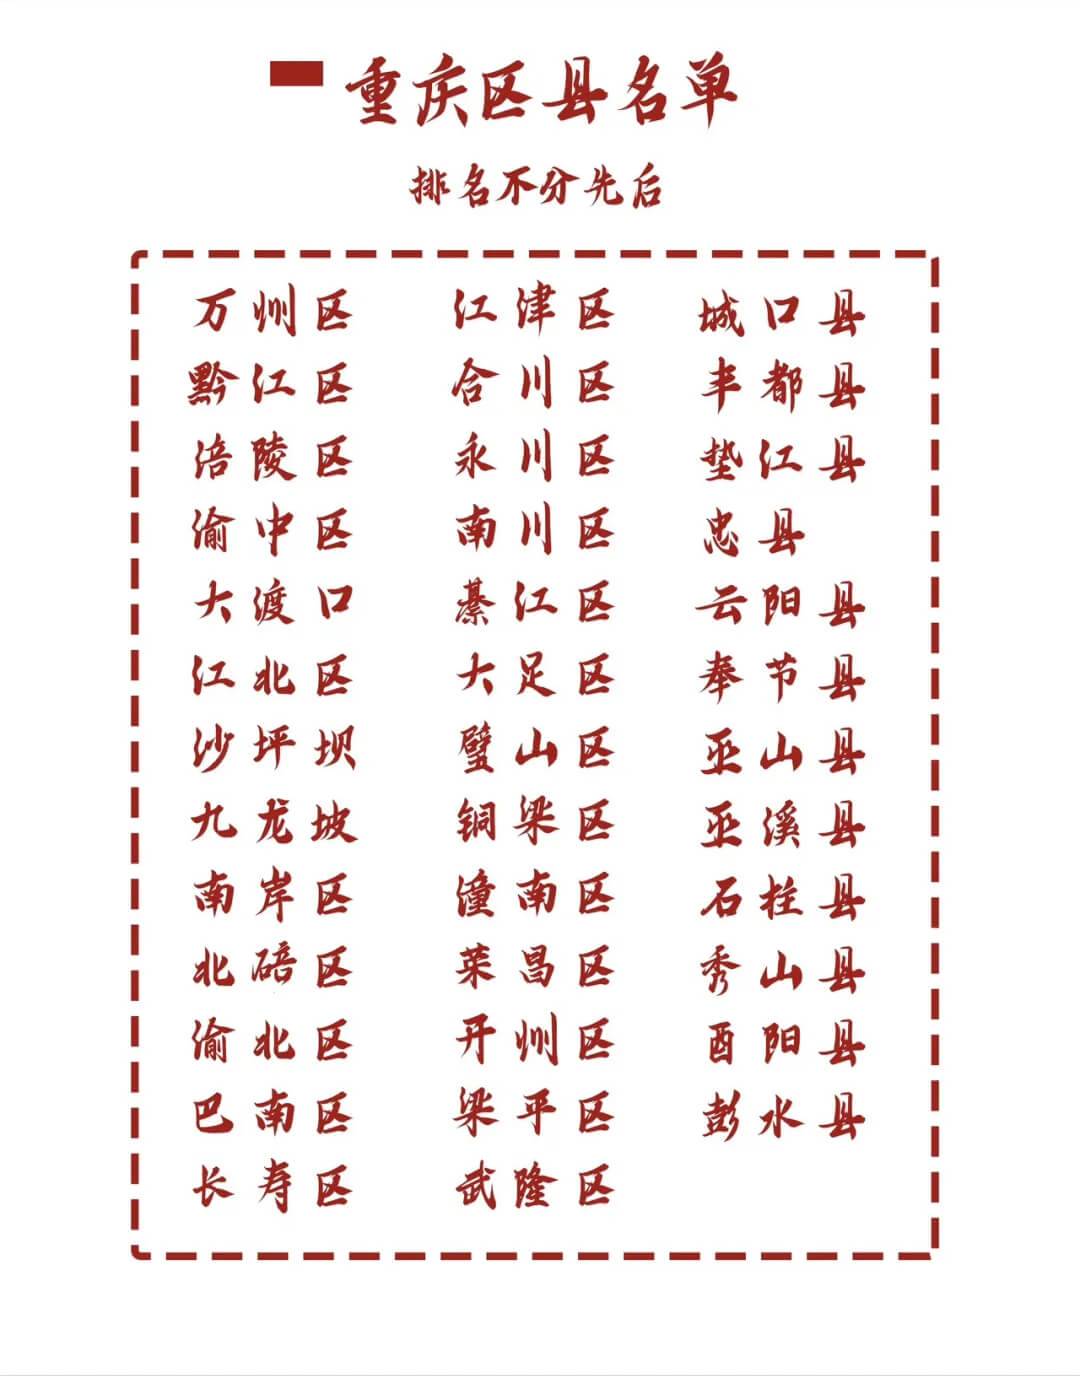 重庆区县名单
排名不分先后
万州区
黔江区
涪陵区
渝中区
大渡口
江北区
沙坪坝
九龙坡
南岸区
北碚区
渝北区
巴南区
长寿区
江津区
合川区
永川区
南川区
綦江区
大足区
璧山区
铜梁区
潼南区
荣昌区
开州区
梁平区
武隆区
城口县
丰都县
垫江县
忠县
云阳县
奉节县
巫山县
巫溪县
石柱县
秀山县
酉阳县
彭水县